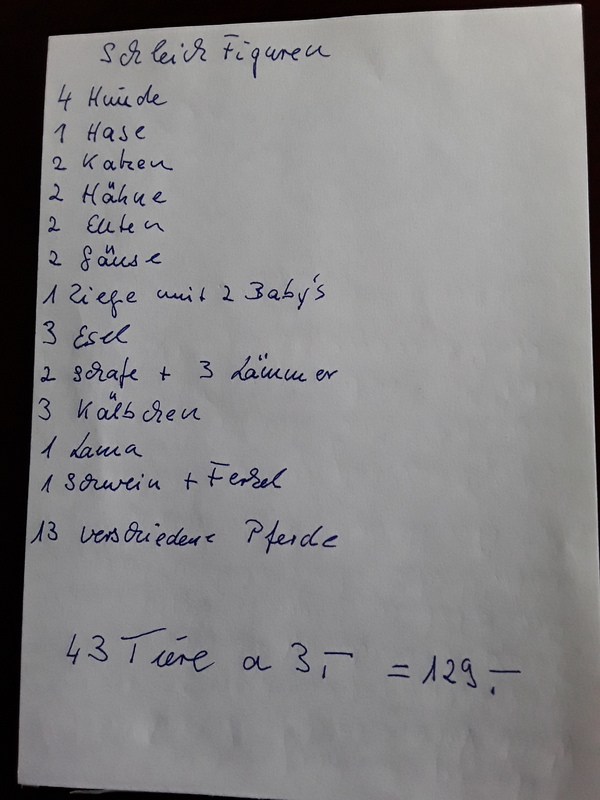 Schleich Figuren
4 Hunde
1 Hase
2 Katzen
2 Hähne
2 Enten
2 Gänse
1 Ziege mit 2 Baby's
3 Esel
2 Schafe + 3 Lämmer
3 Kälbchen
1 Lama
1 Schwein + Ferkel
13 verschiedene Pferde
43 Tiere a 3,- = 129.-